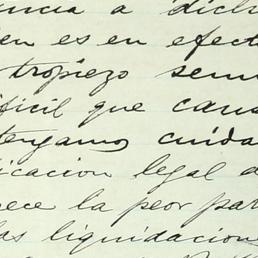 ncia a dich
en es en efect
tropiezo sem
ificil que caus
tengamos cuida
icacion legal d
ece la peor par
las liquidacion